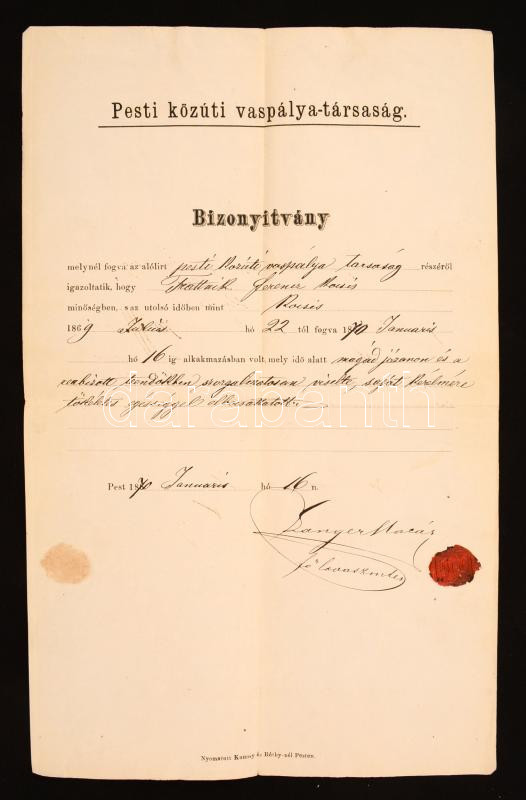 Pesti közúti vaspálya-társaság.
Bizonyitvány
melynél fogva az alólirt pesti közúti vaspálya tarsaság részéről
igazoltatik, hogy Ferencz Kocsis
minőségben, az utolsó időben mint Kocsis
1869 Július hó 22 től fogva 1870 Januaris
hó 16 ig alkalmazásban volt, mely idő alatt magád józanon és a
reabizott teendőkben szorgalmatosan viselte, saját kérelmére
tökéletes egésséggel elbocsáttatott.
darabanth
Pest 1870 Januaris hó 16 n.
Nyomatott Kunosy és Réthy-nél Pesten.